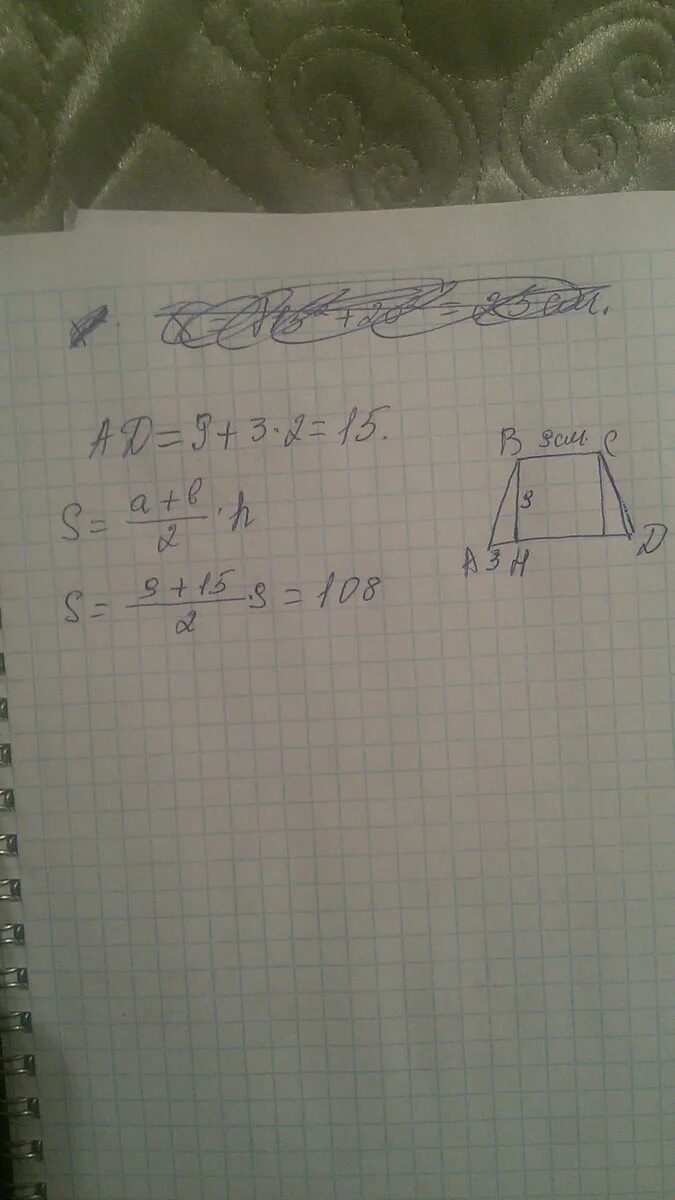 = 25 см.
AD = 9 + 3 · 2 = 15.
S = (a + b)/2 · h
S = (9 + 15)/2 · 9 = 108
B 9см. C
9
A 3 H D